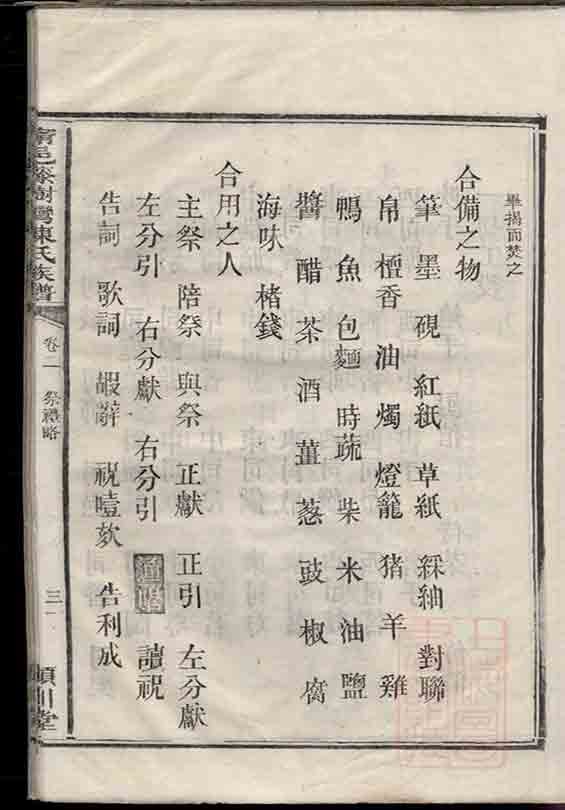 畢揚而焚之
合備之物
筆 墨 硯 紅紙 草紙 綵紬 對聯
帛 檀香 油 燭 燈籠 猪 羊 雞
鴨 魚 包 麵 時蔬 柴 米 油 鹽
醬 醋 茶 酒 薑 葱 豉 椒 腐
海味 楮錢
合用之人
主祭 陪祭 與祭 正獻 正引 左分獻
左分引 右分獻 右分引 通唱 讀祝
告詞 歌詞 嘏辭 祝噎欬 告利成
樹灣陳氏族譜
卷二 祭禮略
三
潁川堂